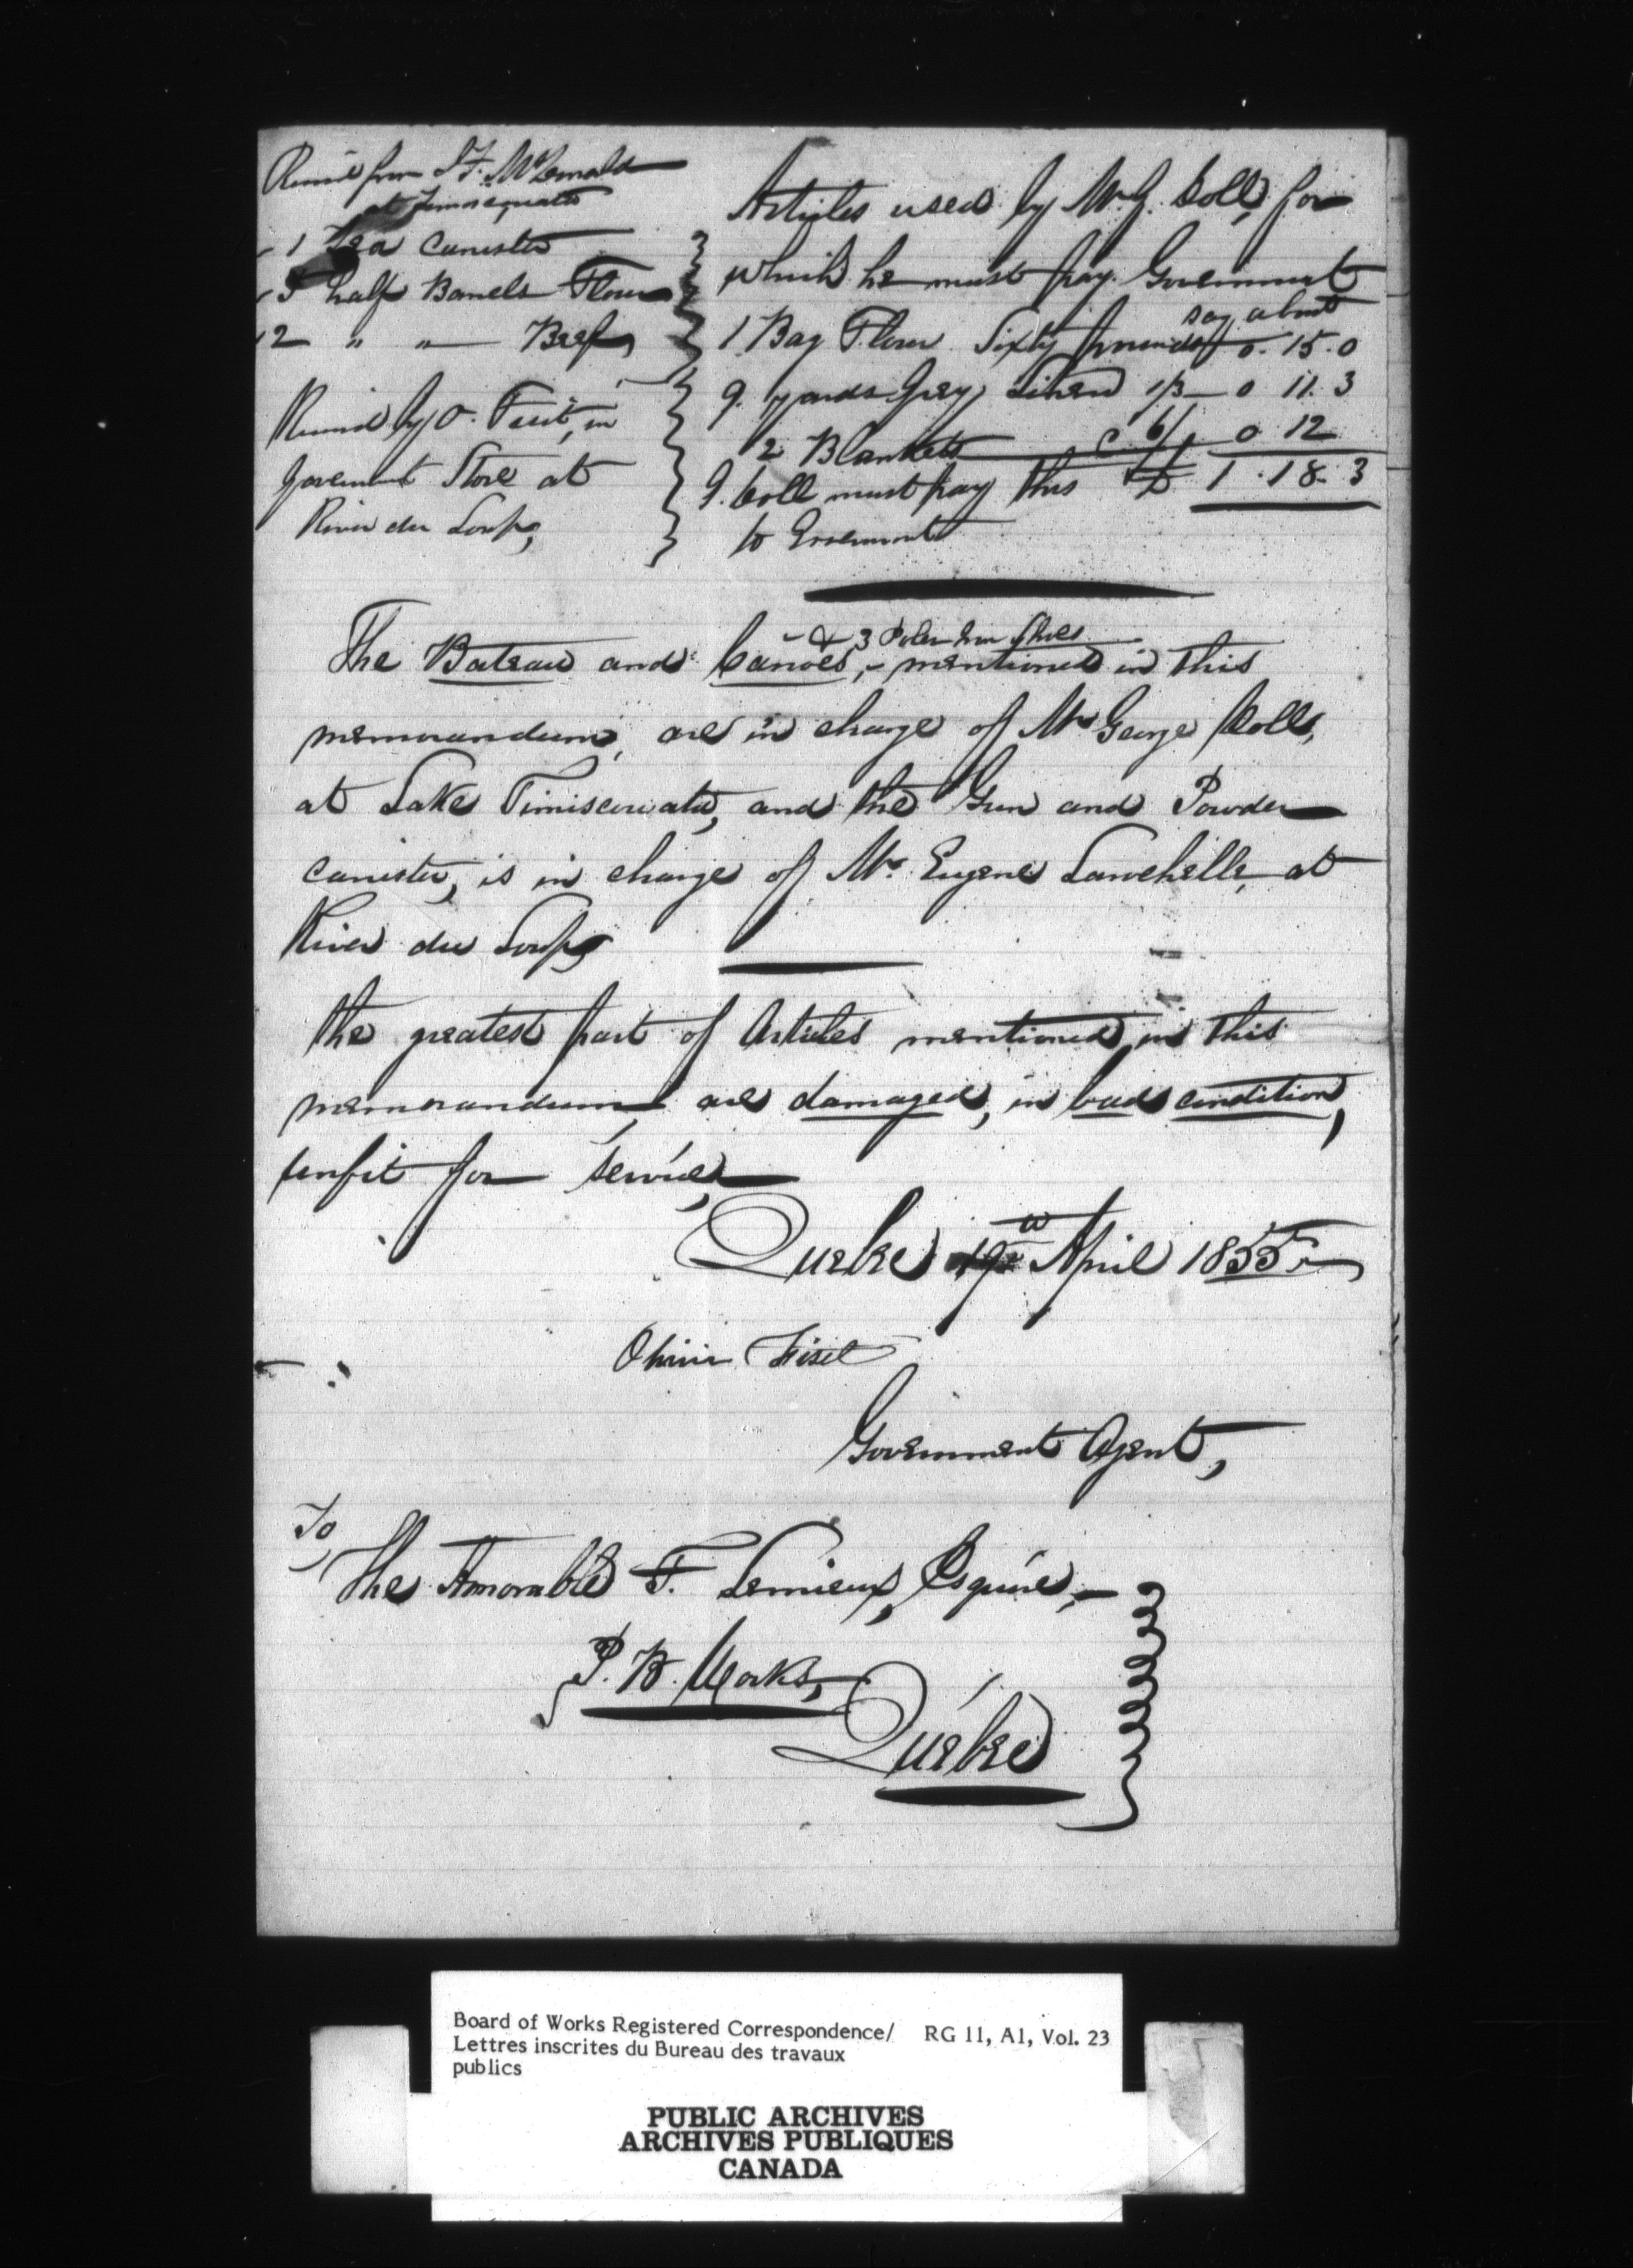 Received from T. F. McDonald
at Timisquata
1 Tea Canister
5 half Barrels Flour
2 " " Beef
Received by O. Fiset, in
Goverment Store at
River du Loup,
Articles used by Mr. G. Coll, for
which he must pay Government
say about
1 Bag Flour Sixty pounds 0. 15. 0
9. yards Grey Linen 1/3 — 0 11. 3
2 Blankets c 6/ 0 12
G. Coll must pay this £ 1 . 18. 3
to Government
& 3 Poles Iron Shoes
The Bateau and Canoes, mentioned in this
memorandum, are in charge of Mr George Coll,
at Lake Timiscouata, and the Gun and Powder
canister, is in charge of Mr. Eugene at
River du Loup
the greatest part of Articles mentioned, in this
memorandum, are damaged, in bad condition,
unfit for service,
Quebec 19th April 1855
Olivier Fiset
Government Agent,
To
The Honorable F. Lemieux, Esquire,
P. B. Works,
Quebec
Board of Works Registered Correspondence/ RG 11, A1, Vol. 23
Lettres inscrites du Bureau des travaux
publics
PUBLIC ARCHIVES
ARCHIVES PUBLIQUES
CANADA